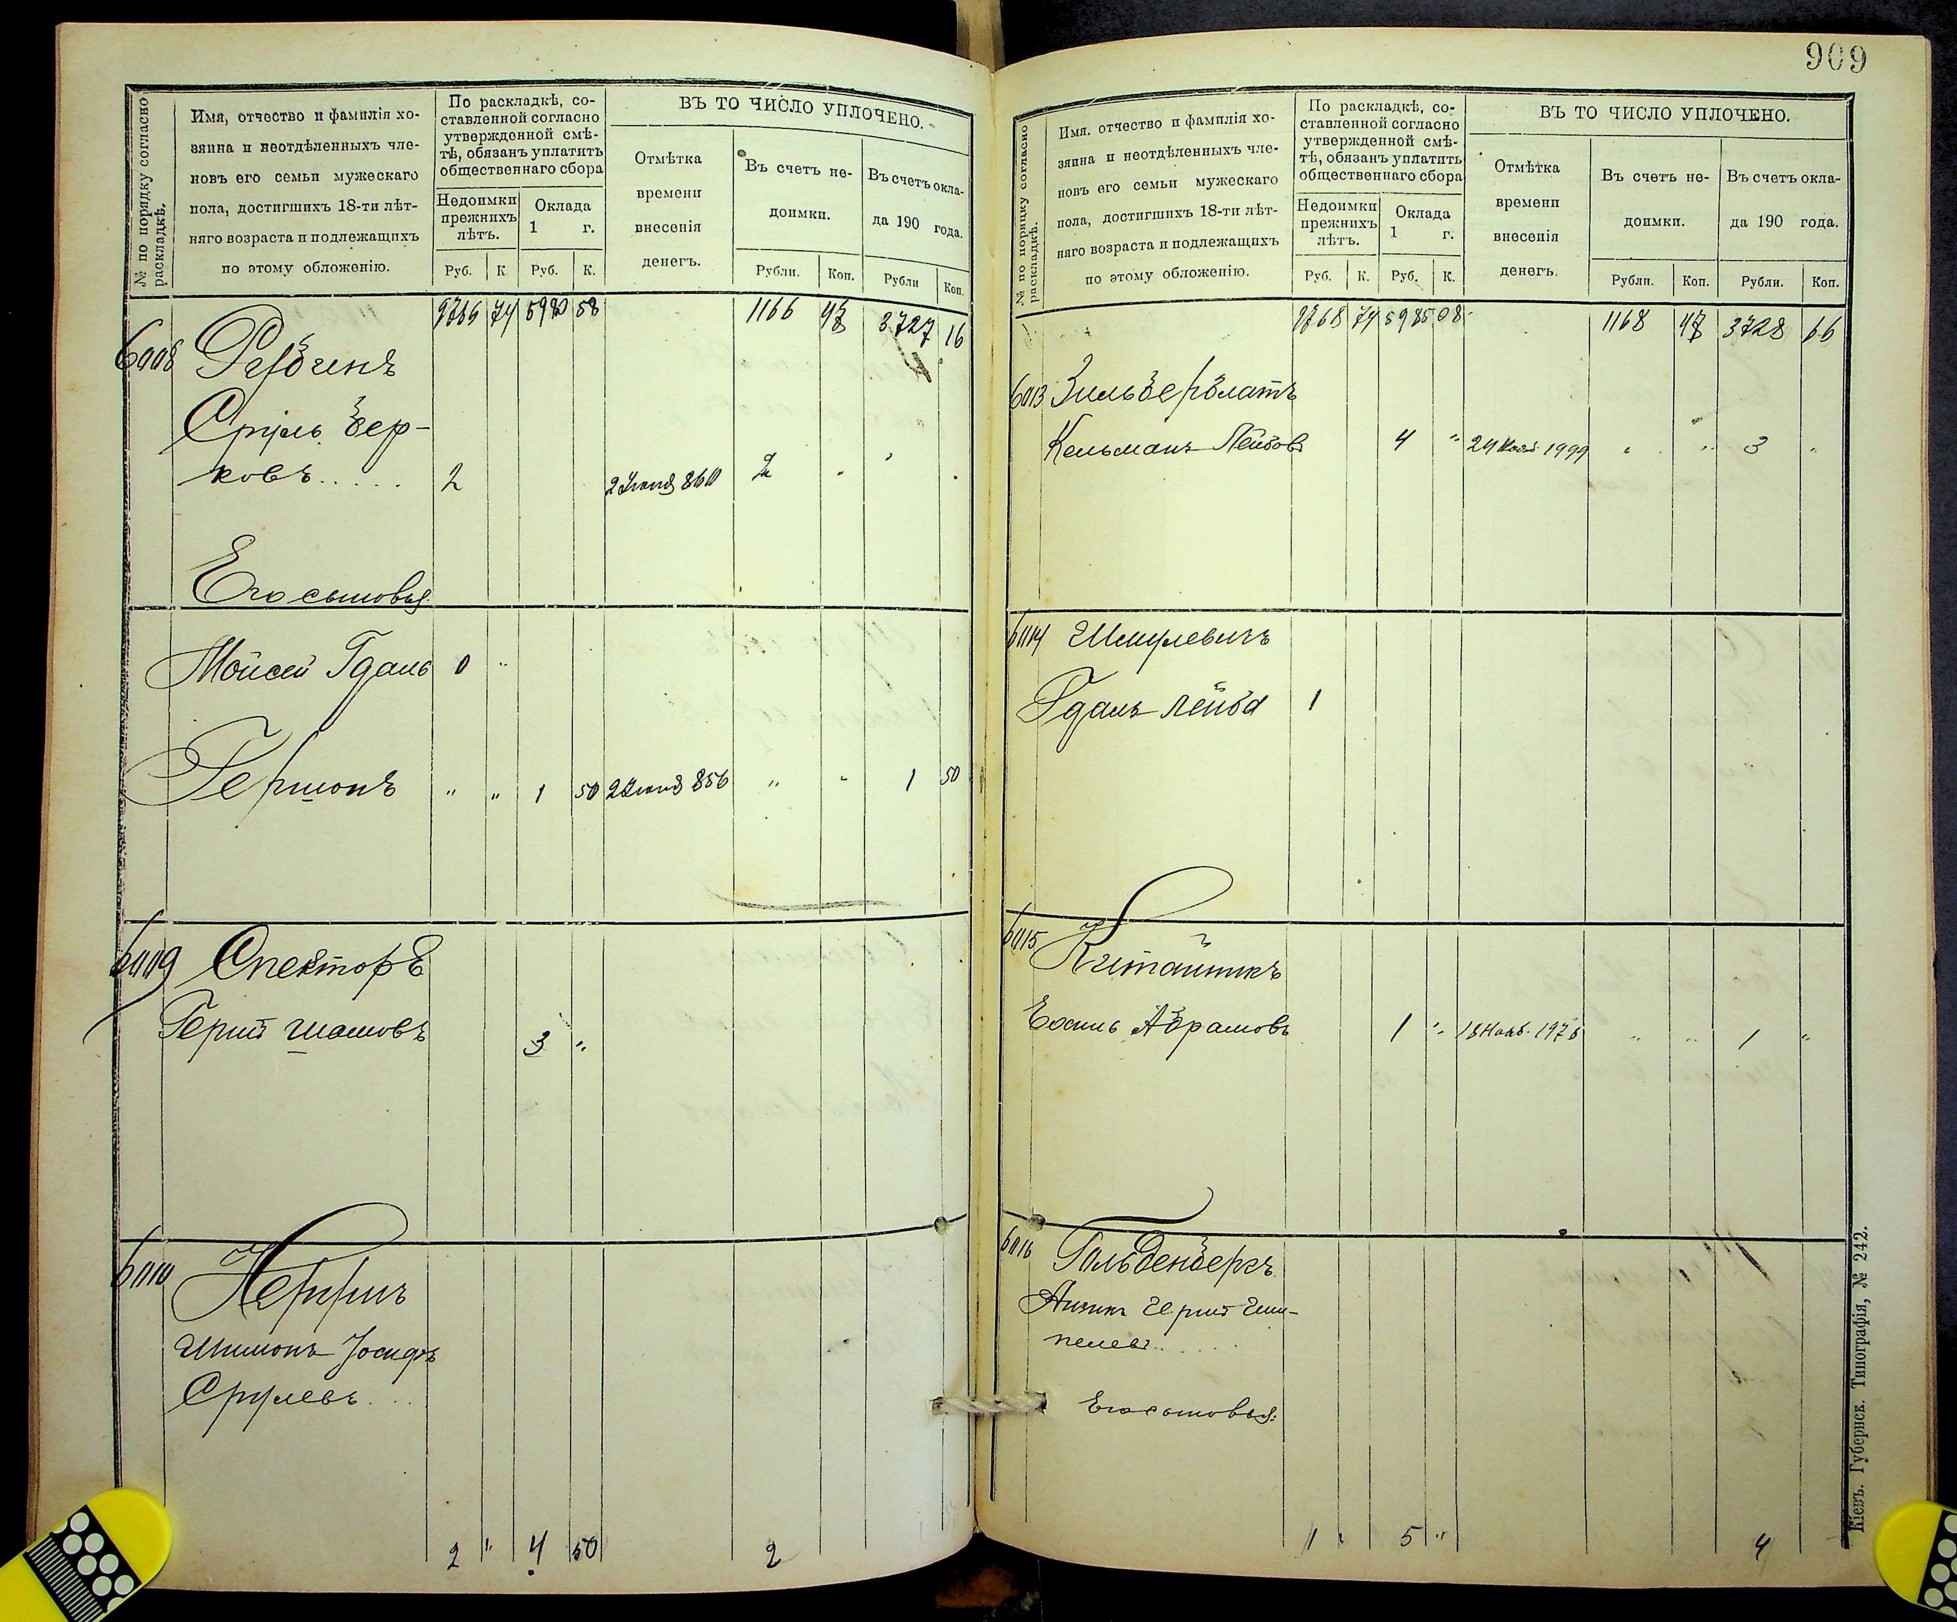 909
№ по порядку согласно раскладкѣ.
Имя, отчество и фамилія хо-
зяина и неотдѣленныхъ чле-
новъ его семьи мужескаго
пола, достигшихъ 18-ти лѣт-
няго возраста и подлежащихъ
по этому обложенію.
По раскладкѣ, со-
ставленной согласно
утвержденной смѣ-
тѣ, обязанъ уплатить
общественнаго сбора
Недоимки
прежнихъ
лѣтъ.
Оклада
1 г.
Руб. К. Руб. К.
ВЪ ТО ЧИСЛО УПЛОЧЕНО.
Отмѣтка
времени
внесенія
денегъ.
Въ счетъ не-
доимки.
Рубли. Коп.
Въ счетъ окла-
да 190 года.
Рубли Коп.
74 58 1166 3727 16
6008
Сруль Бер-
ковъ..... 2 2
Его сыновья:
Мойсей Гдаль 0 "
Гершонъ " " 1 50 " " 1 50
6009 Спекторъ
Герш Шамовъ 3 "
6010
Шимонъ Іосифъ
Срулевъ...
2 " 4 50 2
№ по порядку согласно раскладкѣ.
Имя, отчество и фамилія хо-
зяина и неотдѣленныхъ чле-
новъ его семьи мужескаго
пола, достигшихъ 18-ти лѣт-
няго возраста и подлежащихъ
по этому обложенію.
По раскладкѣ, со-
ставленной согласно
утвержденной смѣ-
тѣ, обязанъ уплатить
общественнаго сбора
Недоимки
прежнихъ
лѣтъ.
Оклада
1 г.
Руб. К. Руб. К.
ВЪ ТО ЧИСЛО УПЛОЧЕНО.
Отмѣтка
времени
внесенія
денегъ.
Въ счетъ не-
доимки.
Рубли. Коп.
Въ счетъ окла-
да 190 года.
Рубли. Коп.
74 5985 08 1168 3728 66
6013 Зильберблатъ
Кельманъ Лейбовъ 4 " 24 Нояб. 1999 " " 3 "
6014 Шмулевичъ
Гдаль Лейба 1
6015 Китайникъ
Іосипъ Абрамовъ 1 " 18 Нояб. 1975 " " 1 "
6016 Гольденбергъ
Айзикъ Герш
Его сыновья:
1 " 5 " 4
Кіевъ. Губернск. Типографія, № 242.